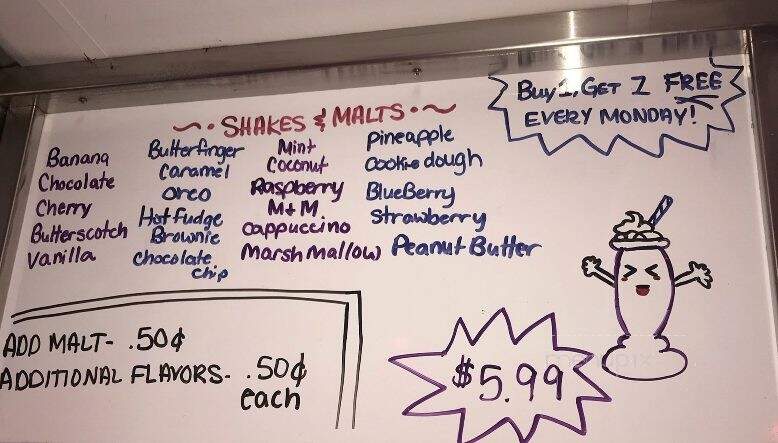 Buy 1, GET 1 FREE
EVERY MONDAY!
SHAKES & MALTS
Banana
Chocolate
Cherry
Butterscotch
Vanilla
Butterfinger
Caramel
Oreo
Hot fudge
Brownie
Chocolate
chip
Mint
Coconut
Raspberry
M+M
Cappuccino
Marshmallow
Pineapple
Cookie dough
BlueBerry
Strawberry
Peanut Butter
ADD MALT- .50¢
ADDITIONAL FLAVORS- .50¢
each
$5.99